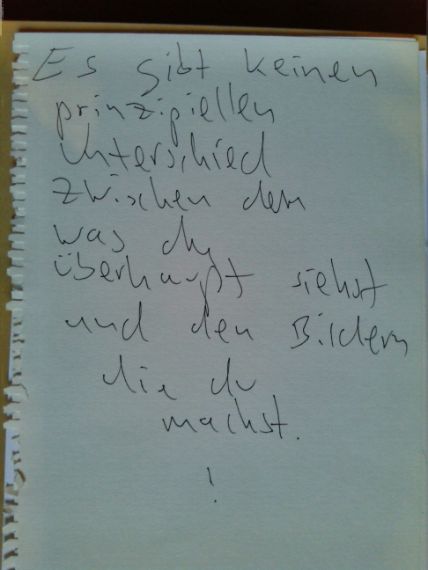 Es gibt keinen
prinzipiellen
Unterschied
zwischen dem
was du
überhaupt siehst
und den Bildern
die du
machst.
!